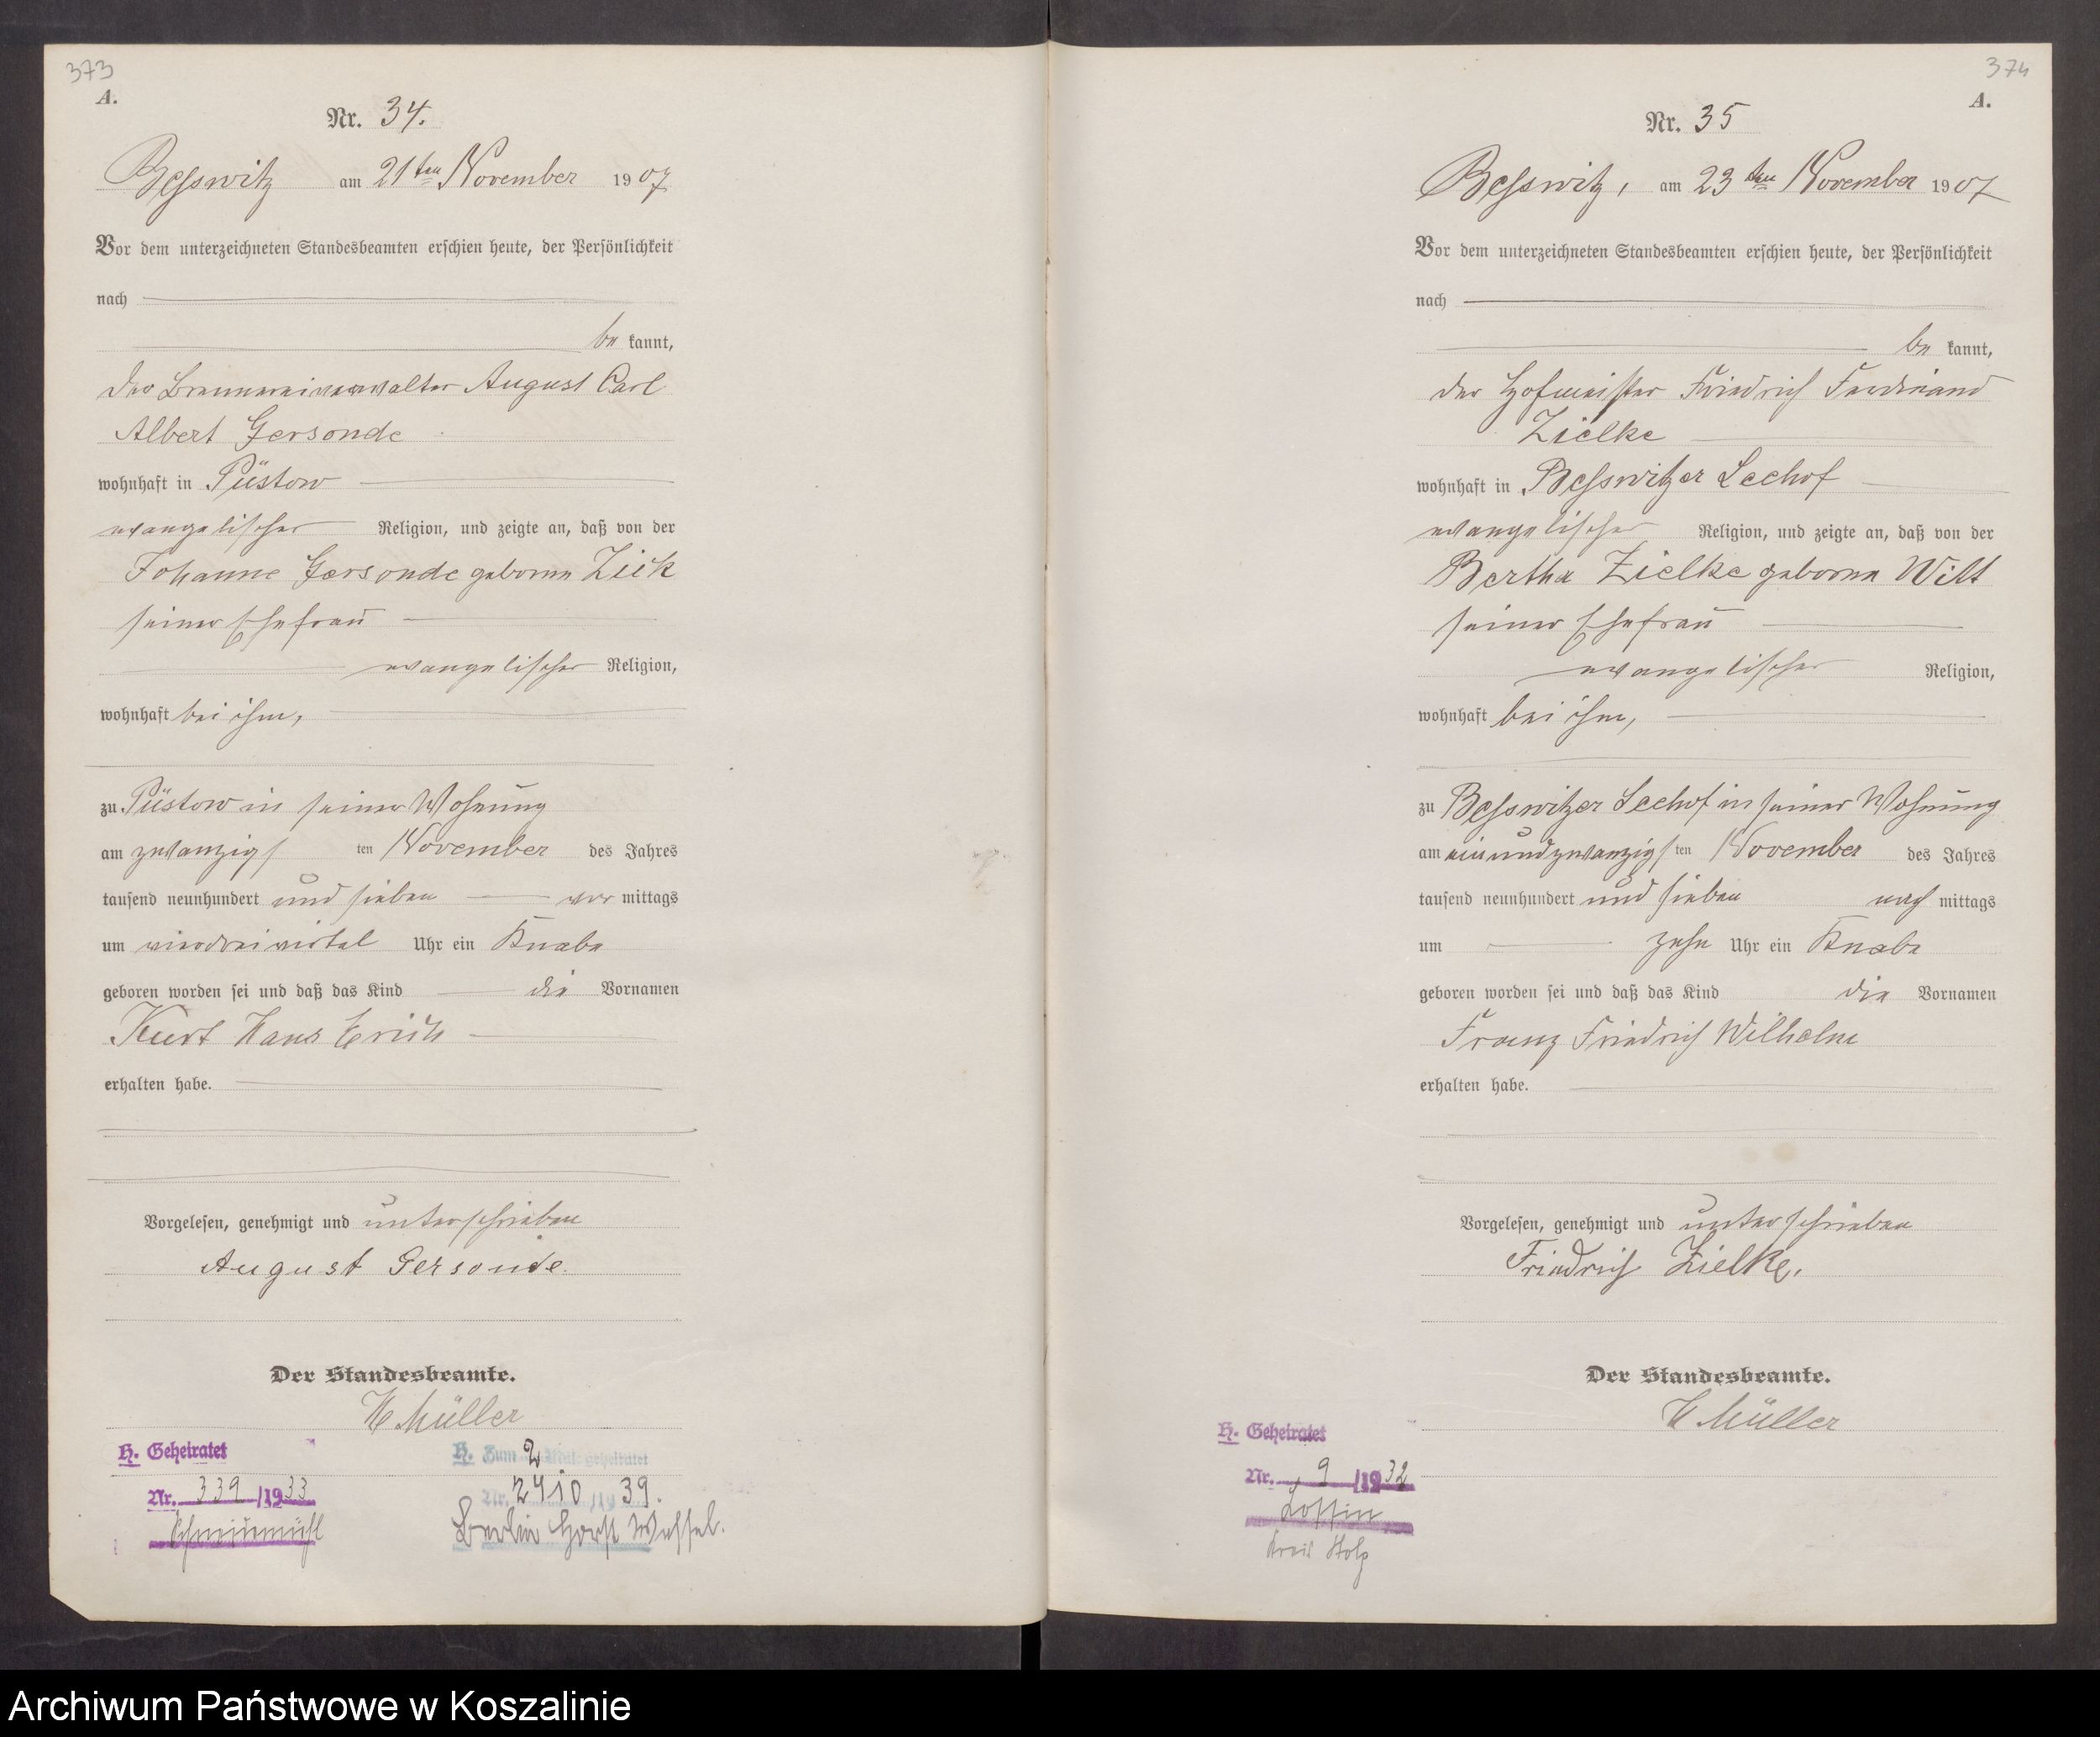 373
A.
Nr. 34.
Besswitz am 21ten November 1907
Vor dem unterzeichneten Standesbeamten erschien heute, der Persönlichkeit
nach
be kannt,
der Brennereiverwalter August Carl
Albert Gersonde
wohnhaft in Püstow
evangelischer Religion, und zeigte an, daß von der
Johanne Gersonde geborne Zick
seiner Ehefrau
evangelischer Religion,
wohnhaft bei ihm,
zu Püstow in seiner Wohnung
am zwanzigsten November des Jahres
tausend neunhundert und sieben vor mittags
um vierdreivirtel Uhr ein Knabe
geboren worden sei und daß das Kind die Vornamen
Kurt Hans Erich
erhalten habe.
Vorgelesen, genehmigt und unterschrieben
August Gersonde.
Der Standesbeamte.
H Müller
H. Geheiratet
Nr. 339/1933
Schneidemühl
H. Zum 2 Male geheiratet
Nr. 2410/1939.
Berlin Horst Wessel.
374
A.
Nr. 35
Besswitz, am 23ten November 1907
Vor dem unterzeichneten Standesbeamten erschien heute, der Persönlichkeit
nach
be kannt,
der Hofmeister Friedrich Ferdinand
Zielke
wohnhaft in Besswitzer Seehof
evangelischer Religion, und zeigte an, daß von der
Bertha Zielke geborne Wilt
seiner Ehefrau
evangelischer Religion,
wohnhaft bei ihm,
zu Besswitzer Seehof in seiner Wohnung
am einundzwanzigsten November des Jahres
tausend neunhundert und sieben nach mittags
um zehn Uhr ein Knabe
geboren worden sei und daß das Kind die Vornamen
Franz Friedrich Wilhelm
erhalten habe.
Vorgelesen, genehmigt und unterschrieben
Friedrich Zielke.
Der Standesbeamte.
H Müller
H. Geheiratet
Nr. 9/1932
Lossin
Kreis Stolp
Archiwum Państwowe w Koszalinie